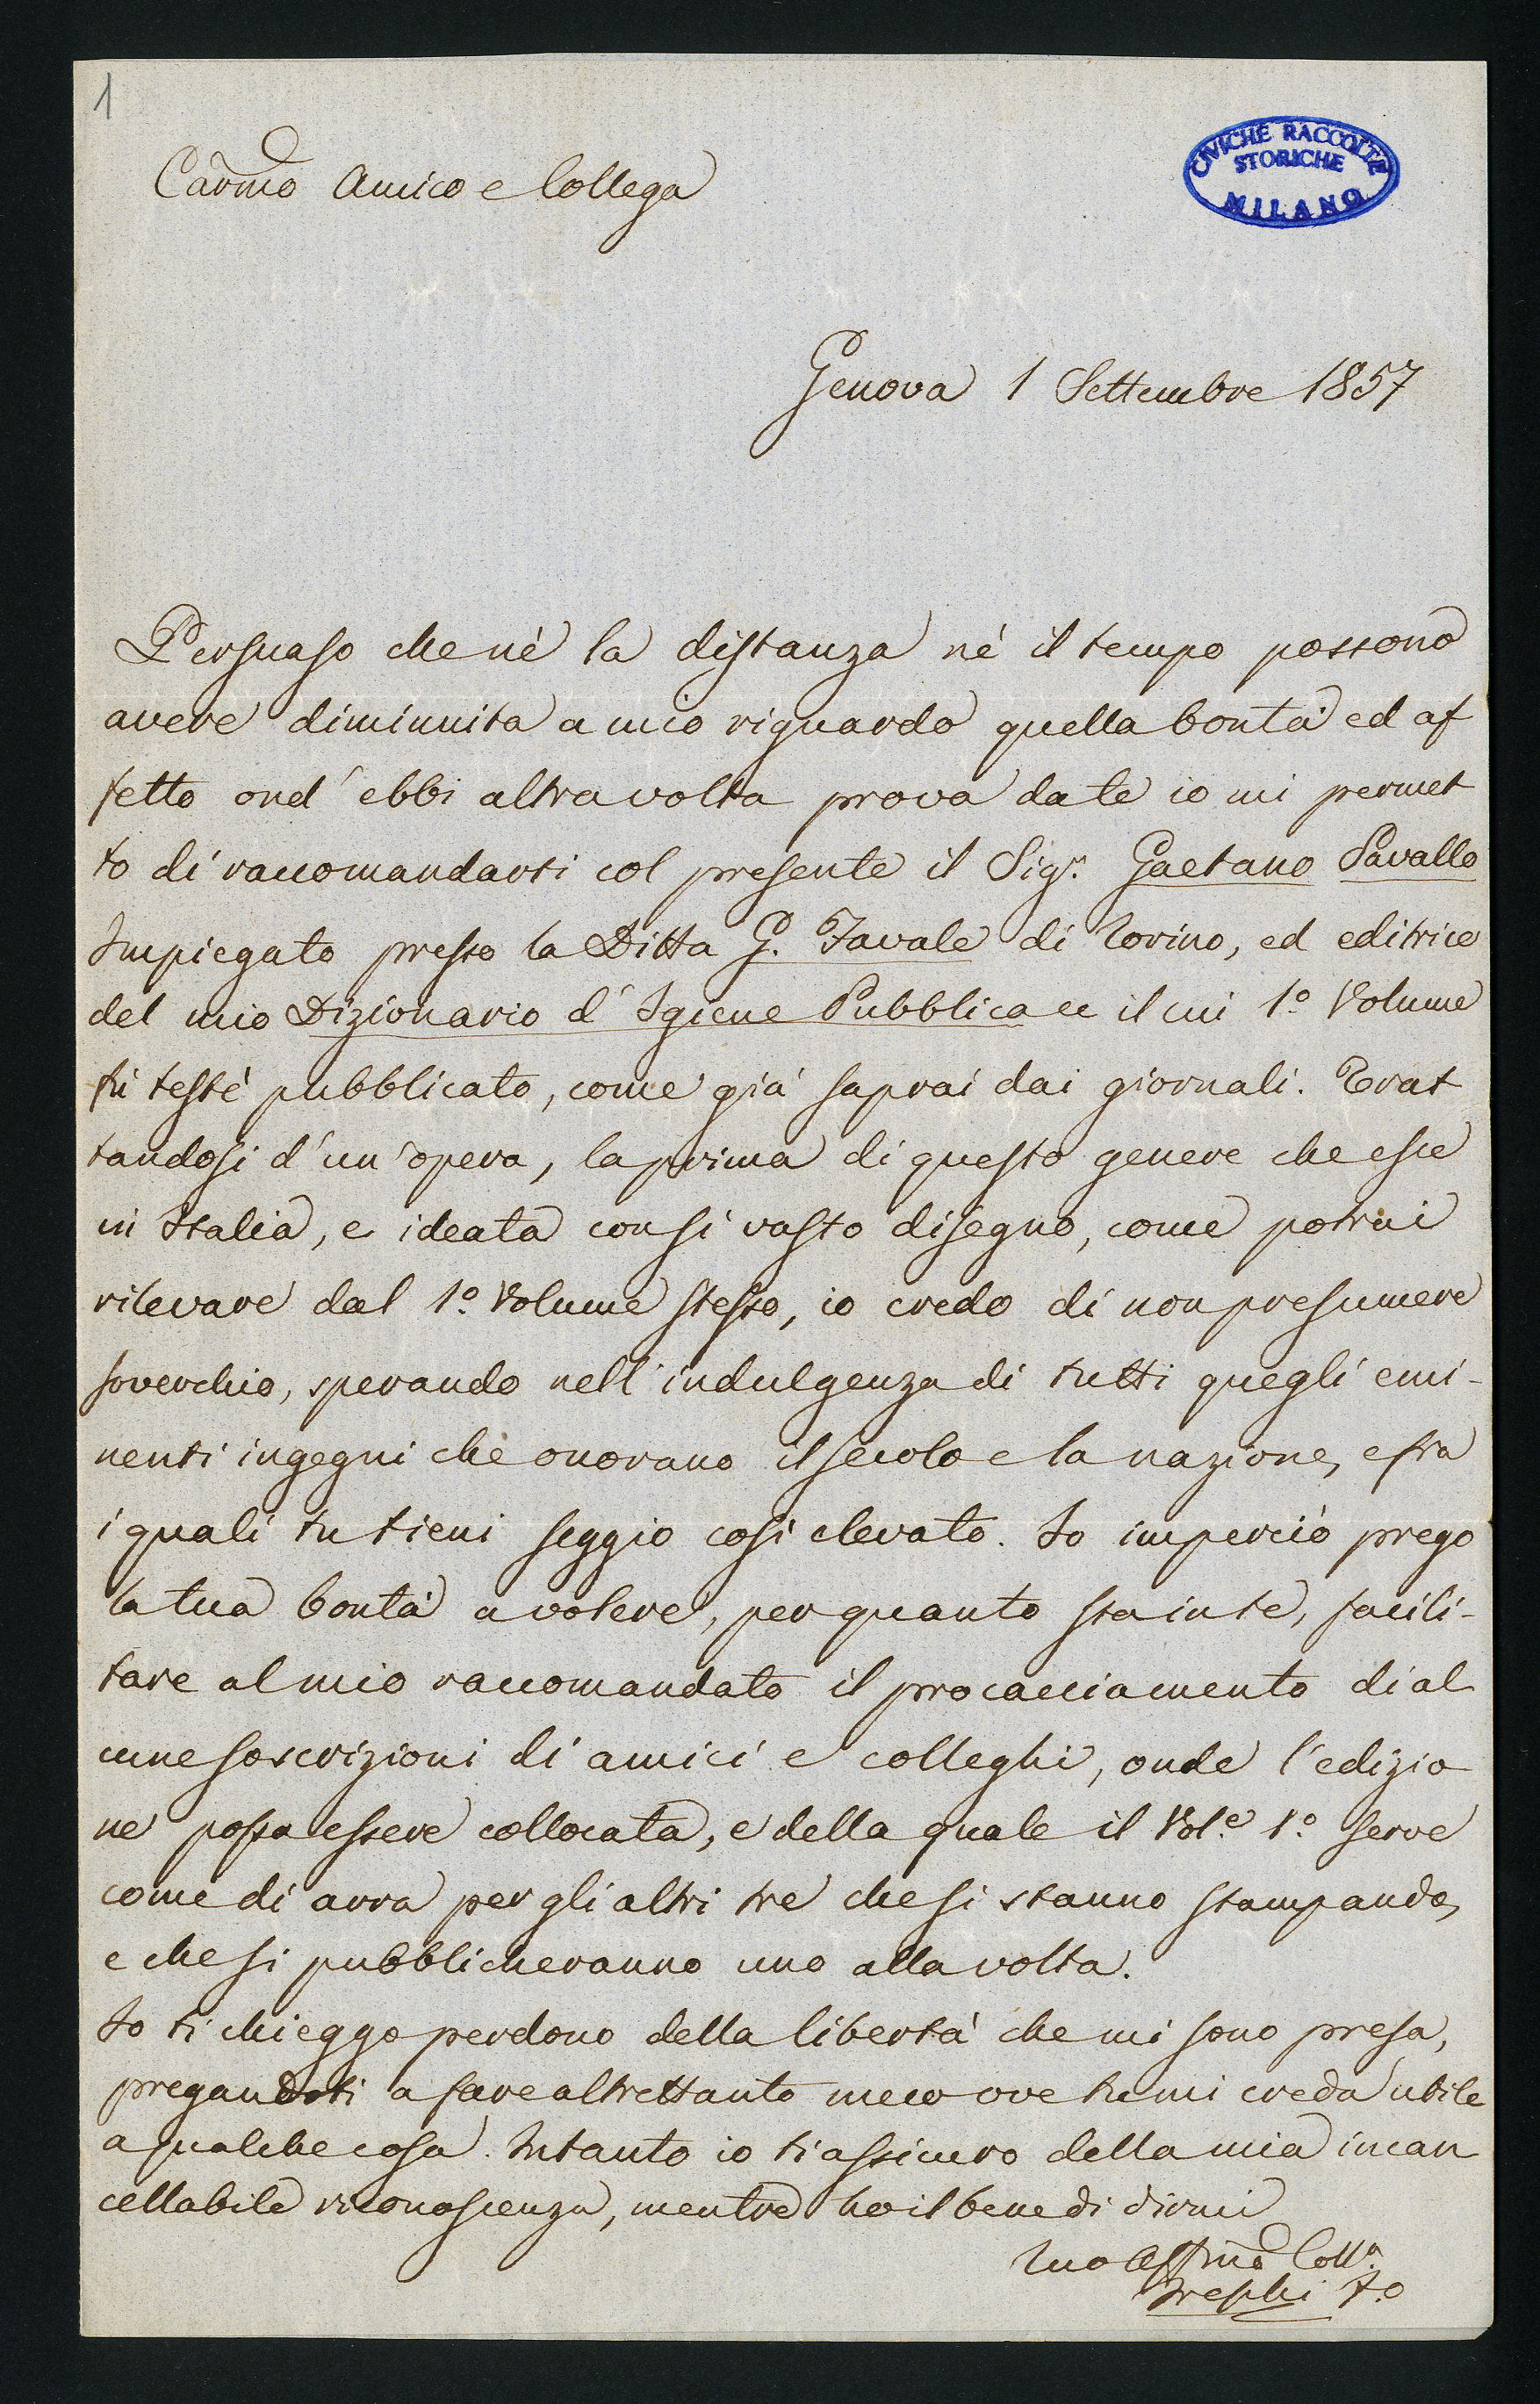 1
CIVICHE RACCOLTE
STORICHE
MILANO
Carmo Amico e Collega
Genova 1 Settembre 1857
Persuaso che nè la distanza nè il tempo possono
avere diminuita a mio riguardo quella bontà ed af
fetto ond' ebbi altra volta prova da te io mi permet
to di raccomandarti col presente il Sigr. Gaetano Savallo
Impiegato presso la Ditta G. Favale di Torino, ed editrice
del mio Dizionario d' Igiene Pubblica ec il cui 1º Volume
fu testè pubblicato, come già saprai dai giornali. Trat
tandosi d' un' opera, la prima di questo genere che esce
in Italia, e ideata con sì vasto disegno, come potrai
rilevare dal 1º Volume stesso, io credo di non presumere
soverchio, sperando nell' indulgenza di tutti quegli emi-
nenti ingegni che onorano il secolo e la nazione, e fra
i quali tu tieni seggio così elevato. Io imperciò prego
la tua bontà a volere, per quanto sta in te, facili-
tare al mio raccomandato il procacciamento di al
cune soscrizioni di amici e colleghi, onde l' edizio
ne possa essere collocata, e della quale il Vol.e 1º serve
come di arra per gli altri tre che si stanno stampando,
e che si pubblicheranno uno alla volta.
Io ti chieggo perdono della libertà che mi sono presa,
pregandoti a fare altrettanto meco ove tu mi creda utile
a qualche cosa. Intanto io ti assicuro della mia incan
cellabile riconoscenza, mentre ho il bene di dirmi
Tuo Affmo Coll.a
Freschi F.o